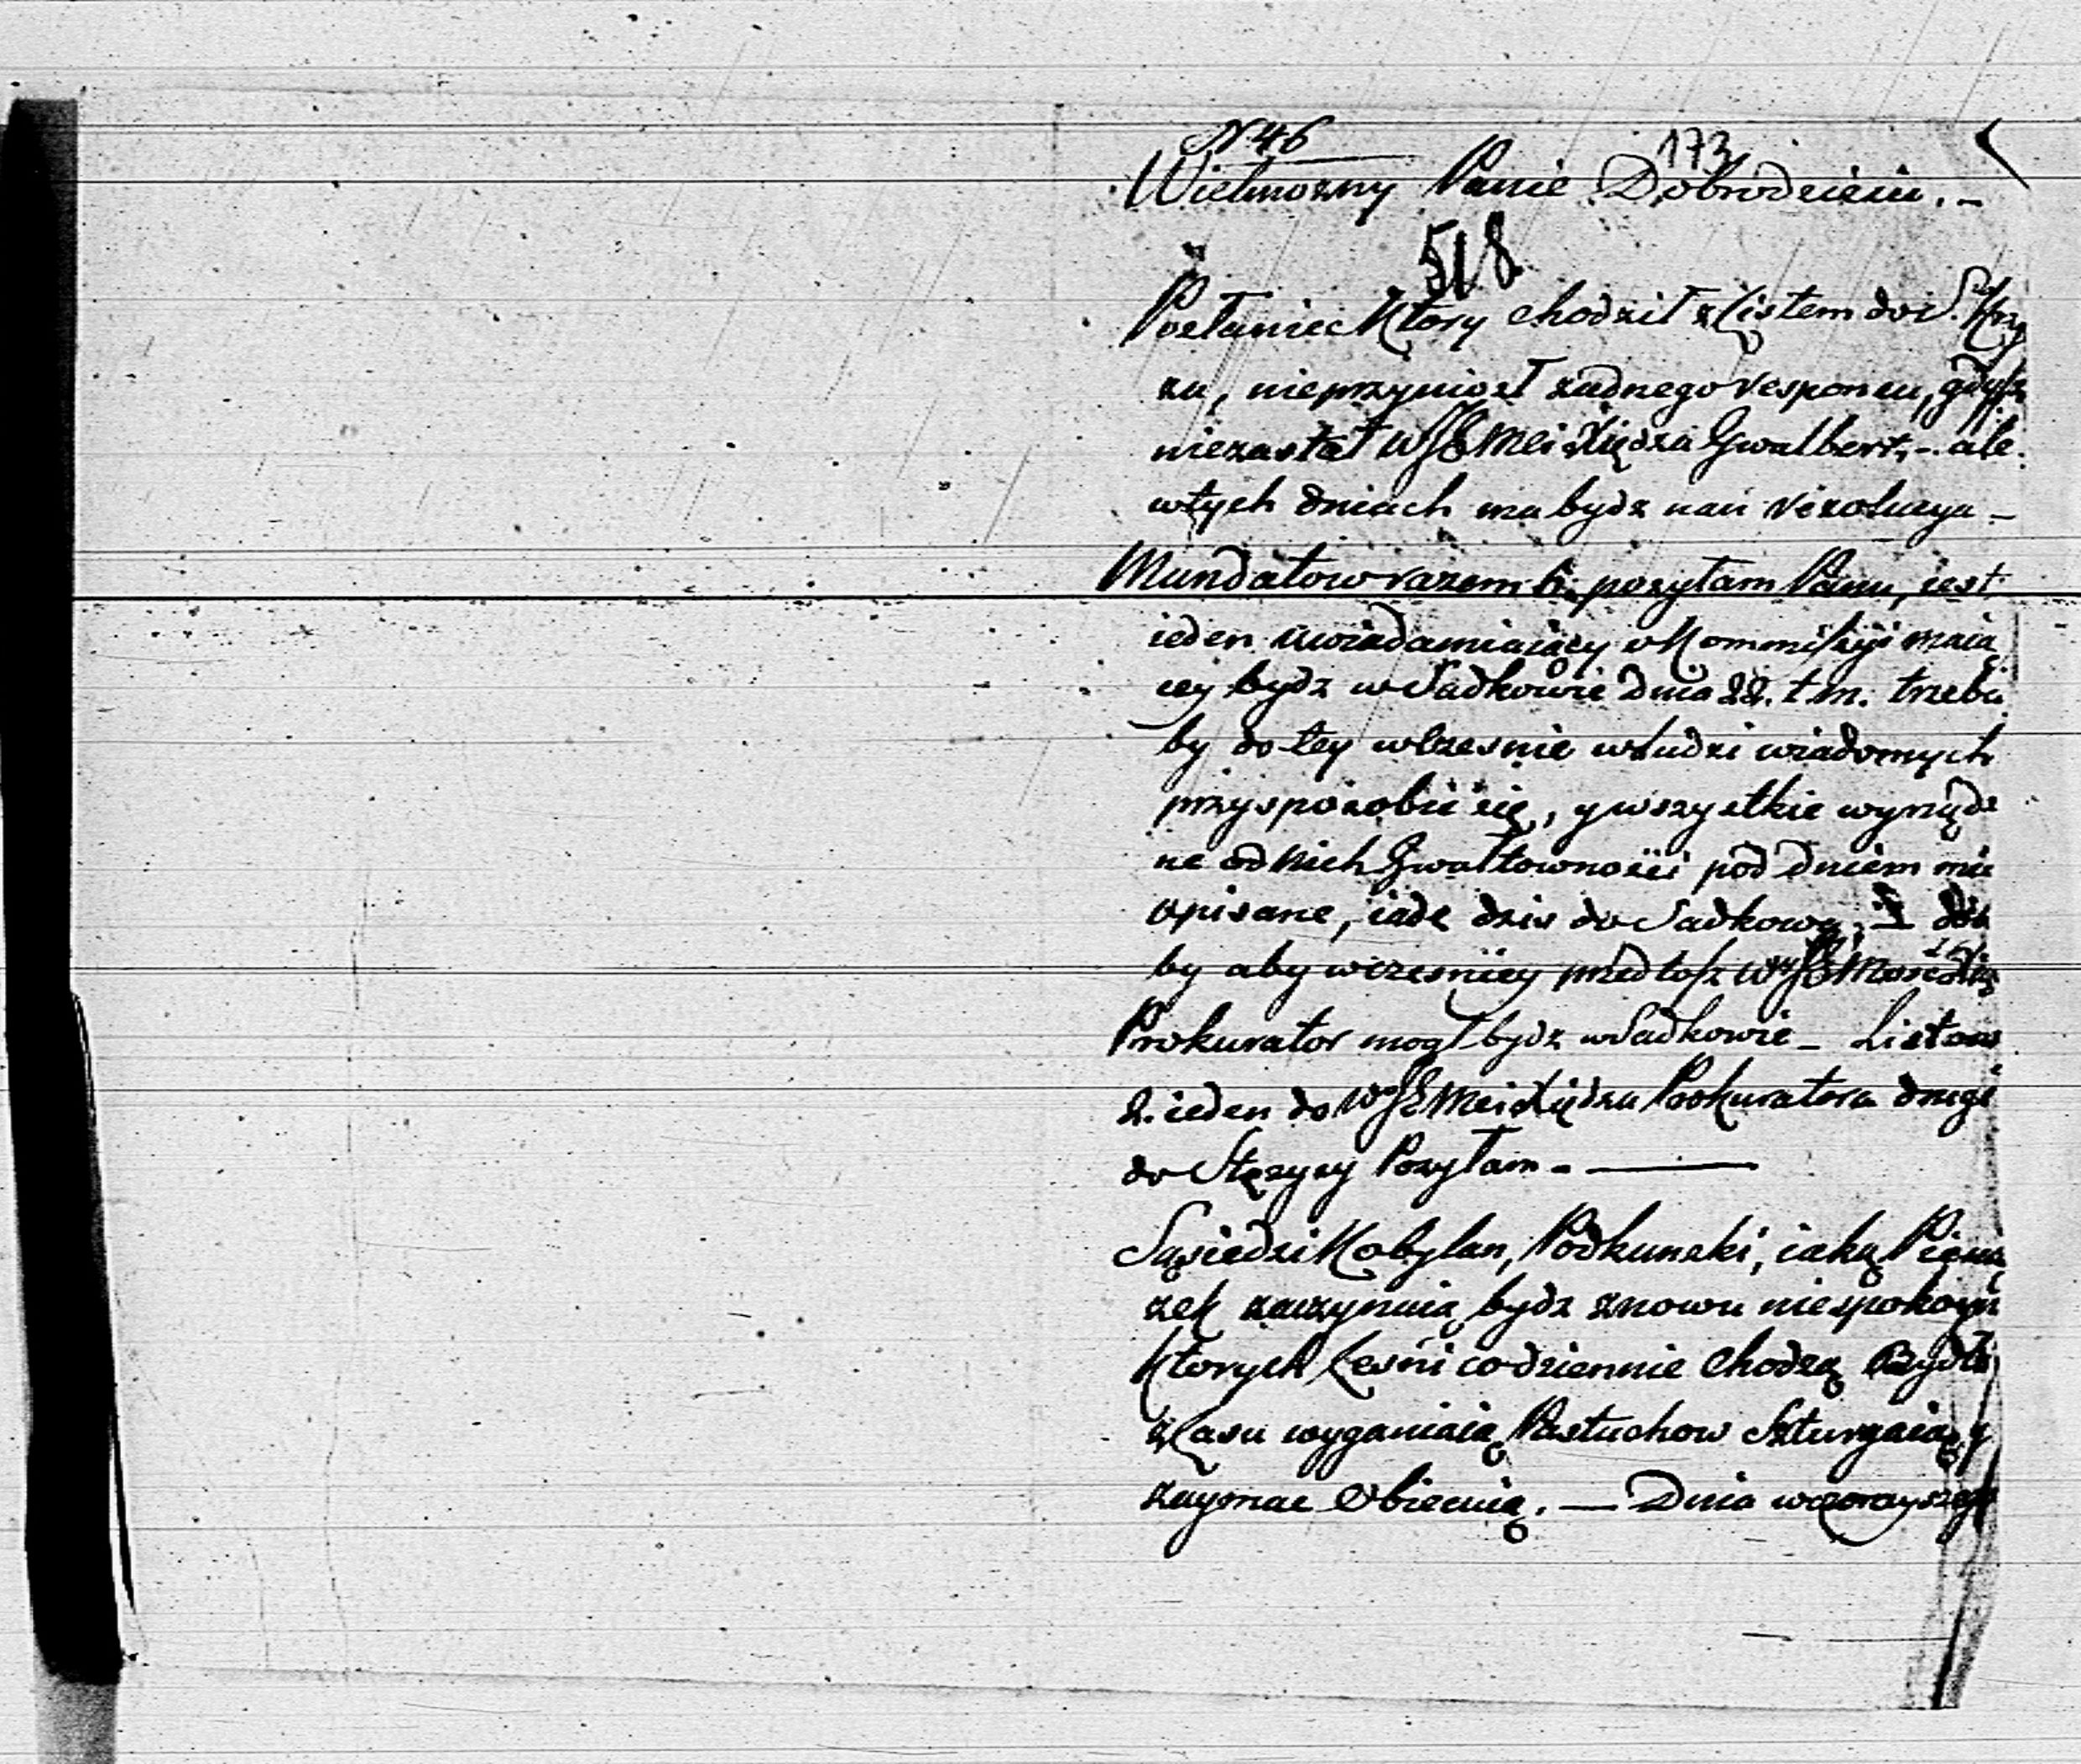 N 46
173
Wielmozny Panie Dobrodzieiu. -
518
Posłaniec ktory chodził z listem do S. Krzy
zu, nieprzyniosł zadnego responsu, gdysz
niezastał WJE Mci Xiędza Gwalbert, - ale
wtych dniach ma bydz nań rezolucya -
Mandatow razem 6. posyłam Panu, iest
ieden uwiadamiaiący o Kommissyi maią
cey bydz w Sadkowie dnia 22. t. m. trzeba
by do tey wczesnie w ludzi wiadomych
przysposobić się, y wszystkie wyrządz
ne od nich Gwałtownosci pod dniem mie
opisane, iadę dzis do Sadkowa,
by aby wczesniey
Prokurator mogł bydz w Sadkowie - Listow
2. ieden do WJE Mci Xiędza Prokuratora drugi
do Stęzycy Posyłam - —
Sąsiedzi Kobylan, Podkunski, iako Pion
zek zaczynaią bydz znowu niespokoyni
ktorych Lesni codziennie chodzą Bydło
z Lasu wyganiaią Pastuchow Szturgaią, y
zaymac Obiecuią. — Dnia wczorayszego